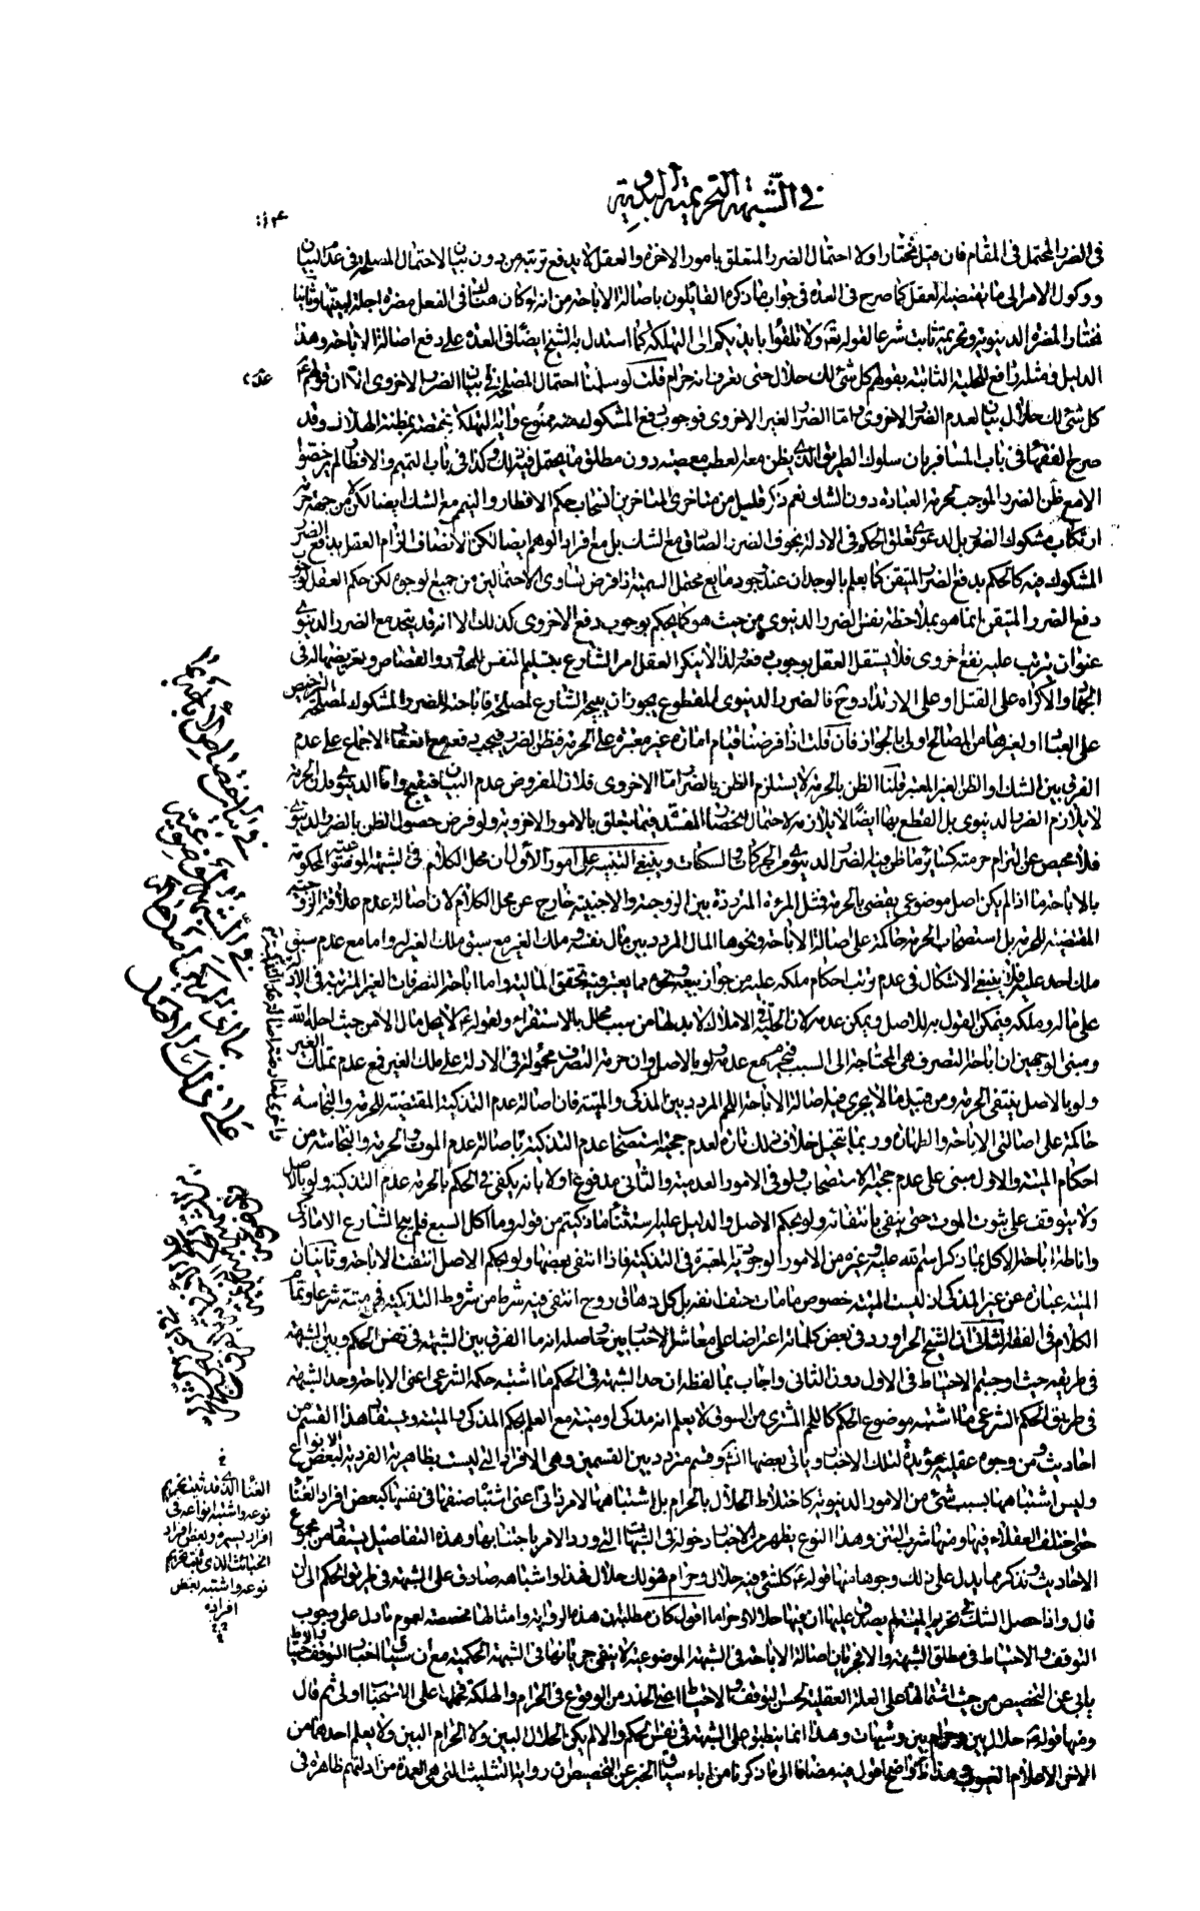 في الشبهة التحريمية البدوية
في الضرر المحتمل في المقام فان قيل نختار اولا احتمال الضرر المتعلق بامور الاخرة والعقل لا يدفع ترتبه من دون بيان لاحتمال المصلحة في عدم البيان
ووكول الامر الى ما يقتضيه العقل كما صرح في العدة في جواب ما ذكره القائلون باصالة الاباحة من انه لو كان هناك في الفعل مضرة اجلة لبينها وثانيا
نختار المضرة الدنيوية وتحريمه ثابت شرعا لقوله تعالى ولا تلقوا بايديكم الى التهلكة كما استدل به الشيخ ايضا في العدة على دفع اصالة الاباحة وهذا
الدليل ومثله رافع للحلية الثابتة بقولهم كل شئ لك حلال حتى تعرف انه حرام قلت لو سلمنا احتمال المصلحة في عدم بيان الضرر الاخروي الا ان قولهم
كل شئ لك حلال بيان لعدم الضرر الاخروي واما الضرر الغير الاخروي فوجوب دفع المشكوك منه ممنوع واية التهلكة مختصة بمظنة الهلاك وقد
صرح الفقهاء في باب المسافر بان سلوك الطريق الذي يظن معه العطب معصية دون مطلق ما يحتمل فيه ذلك وكذا في باب التيمم والافطار لم يرخصوا
الا مع ظن الضرر الموجب لحرمة العبادة دون الشك نعم ذكر قليل من متاخري المتاخرين انسحاب حكم الافطار والتيمم مع الشك ايضا لكن لا من جهة حرمة
ارتكاب مشكوك الضرر بل لدعوى تعلق الحكم في الادلة بخوف الضرر الصادق مع الشك بل مع افراد الوهم ايضا لكن الانصاف الزام العقل بدفع الضرر
المشكوك فيه كالحكم بدفع الضرر المتيقن كما يعلم بالوجدان عند وجود مايع محتمل السمية اذا فرض تساوي الاحتمالين من جميع الوجوه لكن حكم العقل بوجوب
دفع الضرر المتيقن انما هو بملاحظة نفس الضرر الدنيوي من حيث هو كما يحكم بوجوب دفع الاخروي كذلك الا انه قد يتحد مع الضرر الدنيوي
عنوان يترتب عليه نفع اخروي فلا يستقل العقل بوجوب دفعه ولذا لا ينكر العقل امر الشارع بتسليم النفس للحدود والقصاص وتعريضها له في
الجهاد والاكراه على القتل او على الارتداد وح فالضرر الدنيوي المقطوع يجوز ان يبيحه الشارع لمصلحة فاباحته للضرر المشكوك لمصلحة الترخيص
على العباد او لغيرها من المصالح اولى بالجواز فان قلت اذا فرضنا قيام امارة غير معتبرة على الحرمة فيظن الضرر فيجب دفعه مع انعقاد الاجماع على عدم
الفرق بين الشك والظن الغير المعتبر قلنا الظن بالحرمة لا يستلزم الظن بالضرر اما الاخروي فلان المفروض عدم البيان فيقبح واما الدنيوي فلان الحرمة
لا يلازم الضرر الدنيوي بل القطع بها ايضا لا يلازمه لاحتمال انحصار المفسدة فيما يتعلق بالامور الاخروية ولو فرض حصول الظن بالضرر الدنيوي
فلا محيص عن التزام حرمته كسائر ما ظن فيه الضرر الدنيوي من الحركات والسكنات وينبغي التنبيه على امور الاول ان محل الكلام في الشبهة الموضوعية المحكومة
بالاباحة ما اذا لم يكن اصل موضوعي يقضي بالحرمة فمثل المرءة المرددة بين الزوجة والاجنبية خارج عن محل الكلام لان اصالة عدم علاقة الزوجية
المقتضية للحرمة بل استصحاب الحرمة حاكمة على اصالة الاباحة ونحوها المال المردد بين مال نفسه وملك الغير مع سبق ملك الغير له واما مع عدم سبق
ملك احد عليه فلا ينبغي الاشكال في عدم ترتب احكام ملكه عليه من جواز بيعه ونحوه مما يعتبر فيه تحقق المالية واما اباحة التصرفات الغير المترتبة في الادلة
على ماله وملكه فيمكن القول به للاصل ويمكن عدمه لان الحلية في الاملاك لا بد لها من سبب محلل بالاستقراء ولقوله لا يحل مال الا من حيث احله الله
ومبنى الوجهين ان اباحة التصرف هي المحتاجة الى السبب فيحرم مع عدمه ولو بالاصل وان حرمة التصرف محمولة في الادلة على ملك الغير فمع عدم تملك الغير
ولو بالاصل ينتفي الحرمة ومن قبيل ما لا يجري فيه اصالة الاباحة اللحم المردد بين المذكى والميتة فان اصالة عدم التذكية المقتضية للحرمة والنجاسة
حاكمة على اصالتي الاباحة والطهارة وربما يتخيل خلاف ذلك تارة لعدم حجية استصحاب عدم التذكية باصالة عدم الموت والحرمة والنجاسة من
احكام الميتة والاول مبني على عدم حجية الاستصحاب ولو في الامور العدمية والثاني مدفوع اولا بانه يكفي في الحكم بالحرمة عدم التذكية ولو بالاصل
ولا يتوقف على ثبوت الموت حتى ينتفي بانتفائه ولو بحكم الاصل والدليل عليه استثناء ما ذكيتم من قوله وما اكل السبع فلم يبح الشارع الا ما ذكي
واناطة اباحة الاكل بما ذكر اسم الله عليه وغيره من الامور الوجودية المعتبرة في التذكية فاذا انتفى بعضها ولو بحكم الاصل انتفت الاباحة وثانيا ان
الميتة عبارة عن غير المذكى اذ ليست الميتة خصوص ما مات حتف انفه بل كل ذهاق روح انتفى فيه شرط من شروط التذكية فهي ميتة شرعا وتمام
الكلام في الفقه الثاني ان الشيخ الحر اورد في بعض كلماته اعتراضا على معاشر الاخباريين حاصله انه ما الفرق بين الشبهة في نفس الحكم وبين الشبهة
في طريقه حيث اوجبتم الاحتياط في الاول دون الثاني واجاب بما لفظه ان حد الشبهة في الحكم ما اشتبه حكمه الشرعي اعني الاباحة وحد الشبهة
في طريق الحكم الشرعي ما اشتبه موضوع الحكم كاللحم المشترى من السوق لا يعلم انه مذكى او ميتة مع العلم بحكم المذكى والميتة ويستفاد هذا القسم من
احاديث ومن وجوه عقلية مؤيدة لتلك الاخبار وياتي بعضها انش وقسم متردد بين القسمين وهي الافراد التي ليست بظاهرة الفردية لبعض الانواع
وليس اشتباهها بسبب شئ من الامور الدنيوية كاختلاط الحلال بالحرام بل اشتباهها لامر ذاتي اعني اشتباه صنفها في نفسه كبعض افراد الغناء
حتى اختلف العقلاء فيها ومنها شرب التتن وهذا النوع يظهر من الاخبار دخوله في الشبهات التي ورد الامر باجتنابها وهذه التفاصيل يستفاد من مجموع
الاحاديث ونذكر مما يدل على ذلك وجوها منها قوله كل شئ فيه حلال وحرام فهو لك حلال فهذا واشباهه صادق على الشبهة في طريق الحكم الى ان
قال واذا حصل الشك في تحريم الميتة لم يصدق عليها ان فيها حلالا ولا حراما اقول كان مطلبه ان هذه الرواية وامثالها مخصصة لعموم ما دل على وجوب
التوقف والاحتياط في مطلق الشبهة والا فجريان اصالة الاباحة في الشبهة الموضوعية لا ينفي جريانها في الشبهة الحكمية مع ان سياق اخبار التوقف والاحتياط
يابى عن التخصيص من حيث اشتمالها على العلة العقلية لحسن التوقف والاحتياط اعني الحذر من الوقوع في الحرام والهلكة فحملها على الاستحباب اولى ثم قال
ومنها قوله حلال بين وحرام بين وشبهات وهذا انما ينطبق على الشبهة في نفس الحكم والا لم يكن الحلال البين ولا الحرام البين ولا يعلم احدهما من
الاخر الا علام الغيوب وهذا ظاهر واضح اقول فيه مضافا الى ما ذكرنا من اباء سياق الخبر عن التخصيص ان رواية التثليث التي هي العمدة من ادلتهم ظاهرة في
الغناء الذي قد ثبت تحريم
نوعه واشتبه انواعه في
افراد يسيرة وبعض افراد
الخبائث الذي ثبت تحريم
نوعه واشتبه بعض
افراده